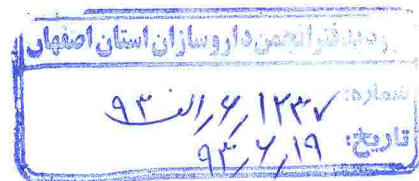 دبیرخانه انجمن داروسازان استان اصفهان
شماره: ۱۲۳۷/۶/الف ۹۳
تاریخ: ۹۳/۶/۱۹